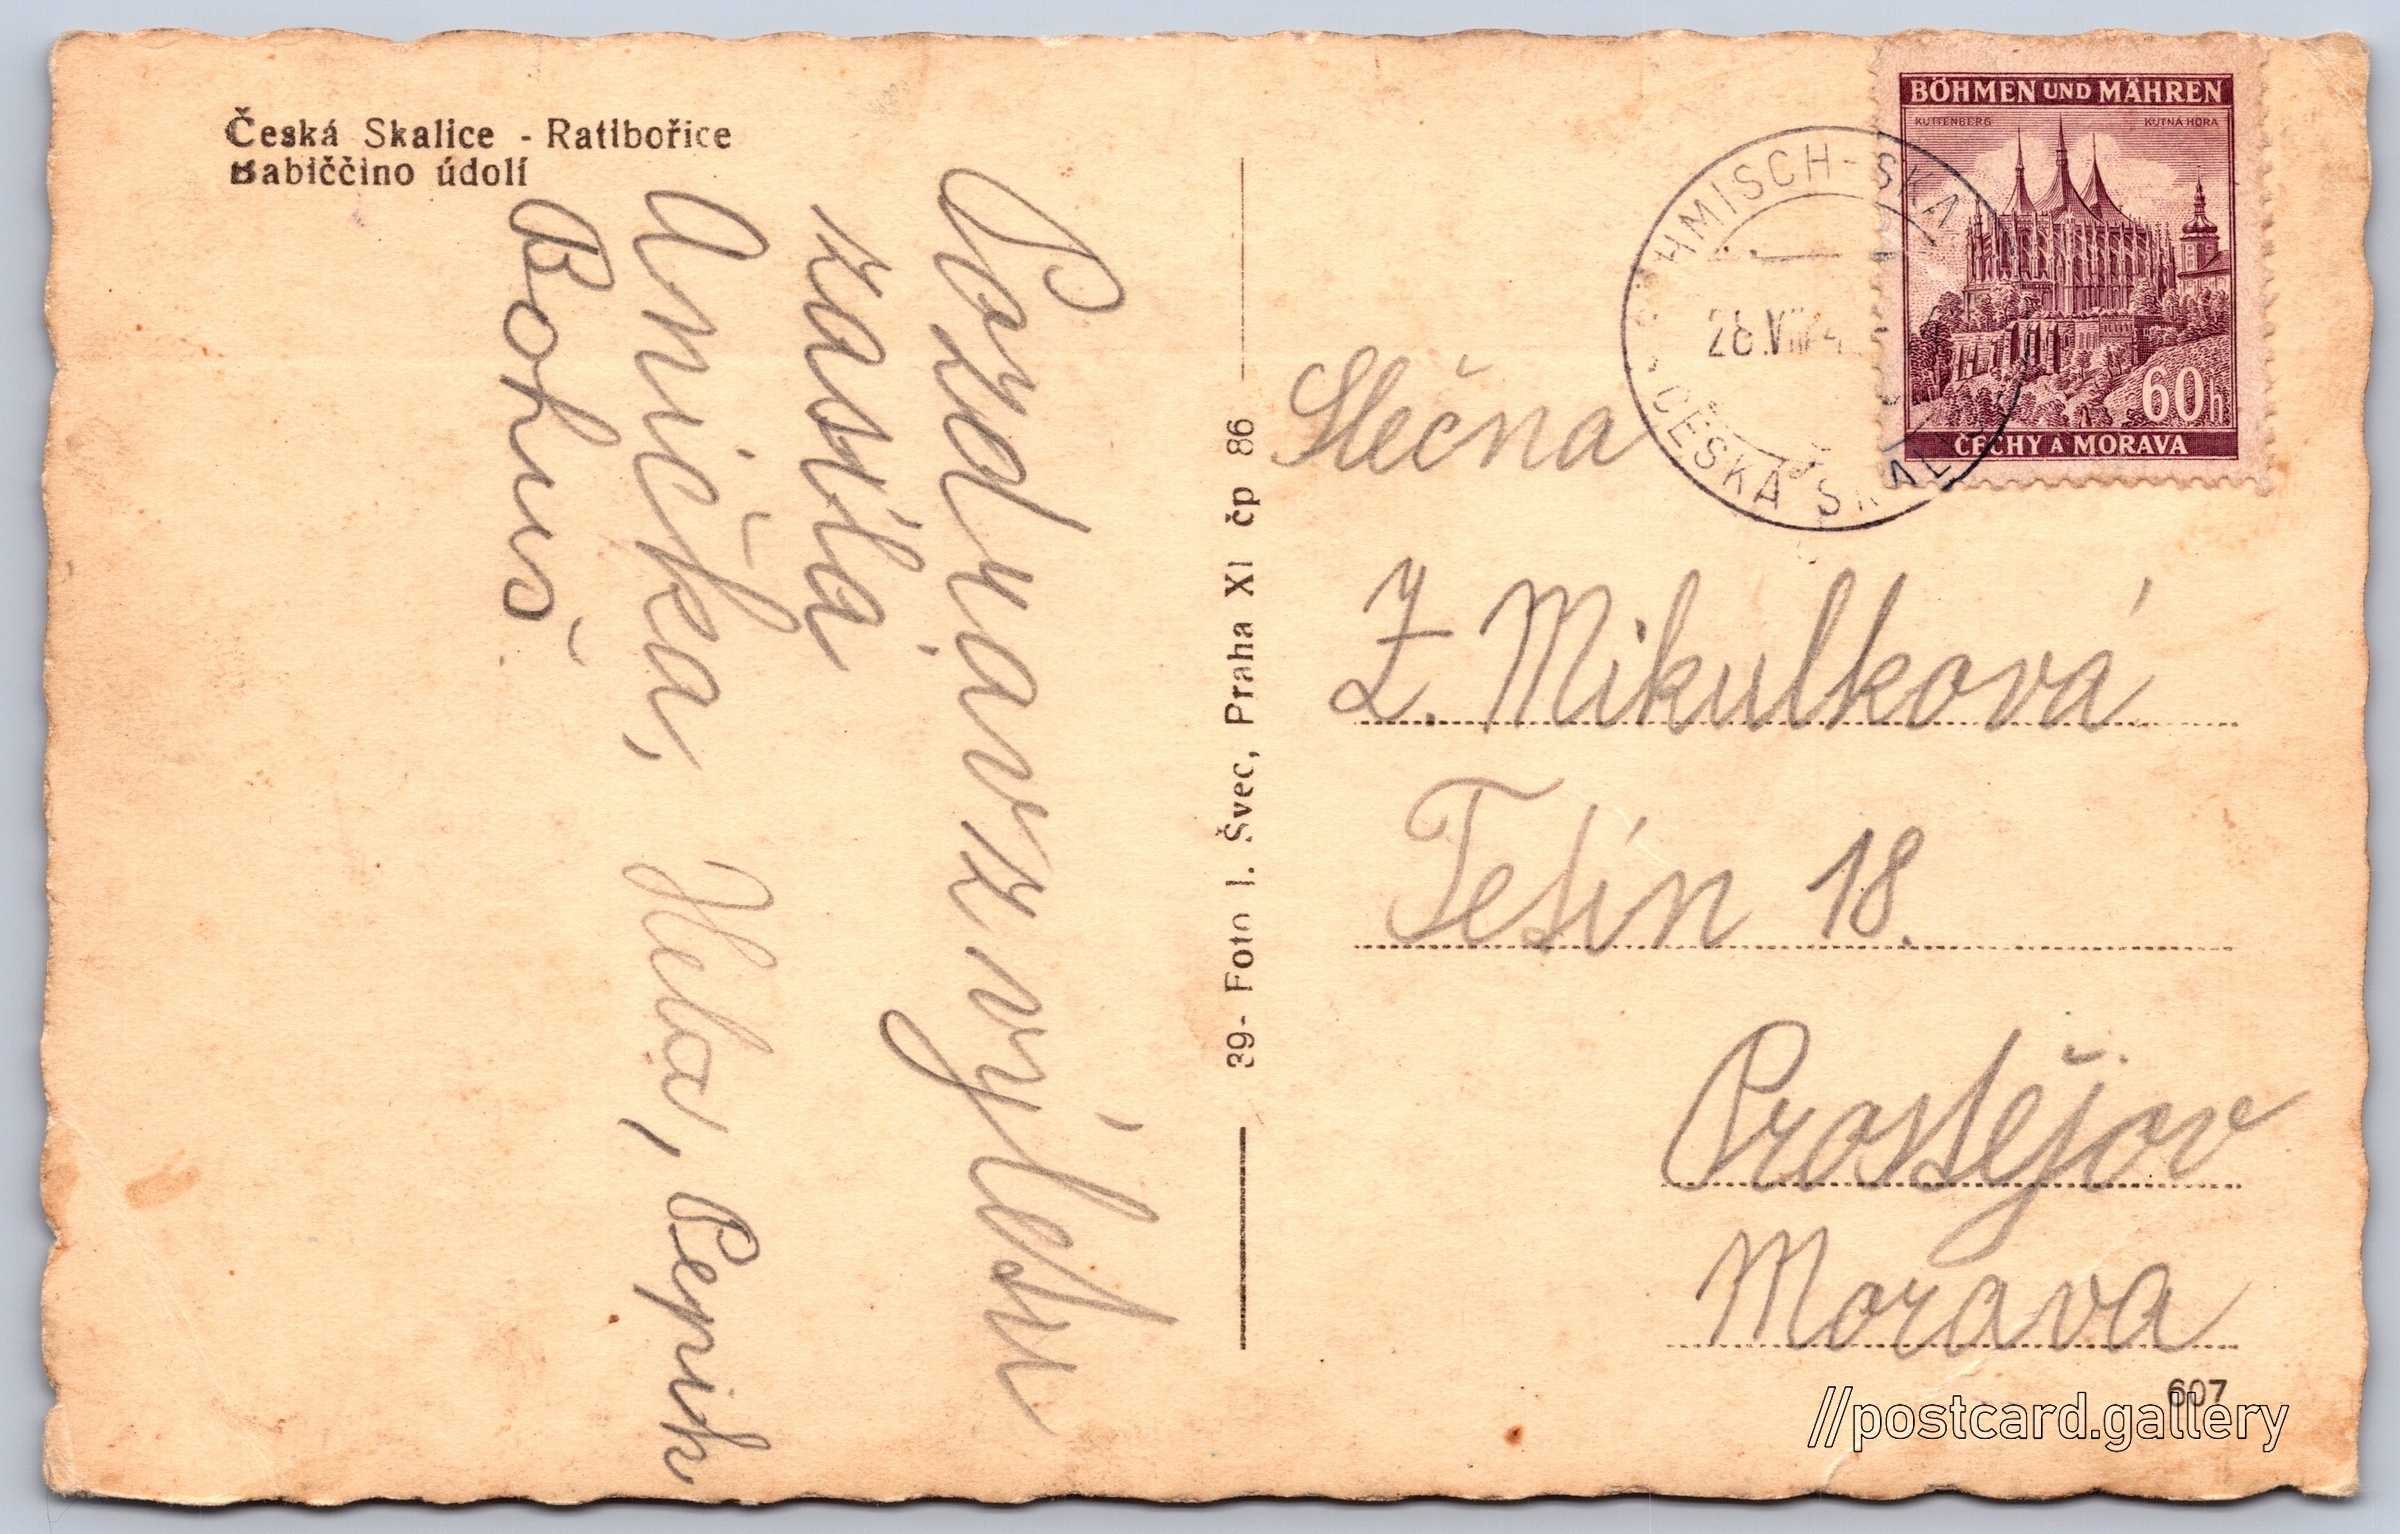 Česká Skalice - Ratibořice
Babiččino údolí
Pozdrav z výletu
zasílá
Anička, Hela, Pepik
Bohuš.
39- Foto I. Švec, Praha XI čp 86
BÖHMEN UND MÄHREN
KUTTENBERG KUTNÁ HORA
60h
ČECHY A MORAVA
HMISCH-SKA
28.VIII.4
ČESKÁ SKAL
Slečna
Z. Mikulková
Tešín 18.
Prostějov
Morava
607
//postcard.gallery